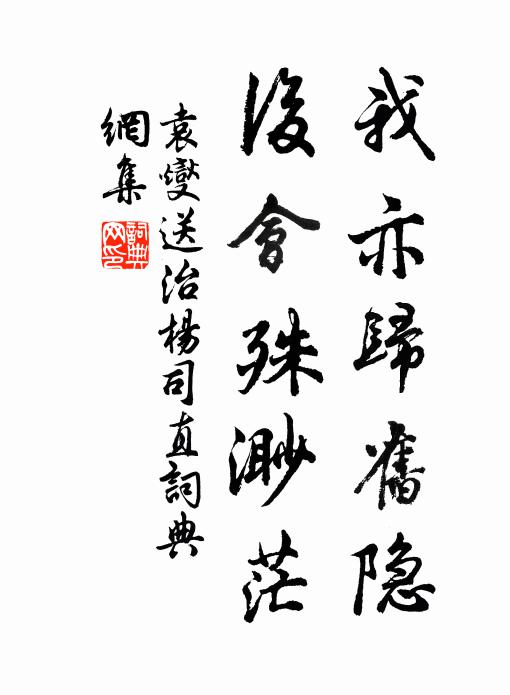 我亦歸舊隐
後會殊渺茫
袁燮送治楊司直詞典
網集
詞典
网印